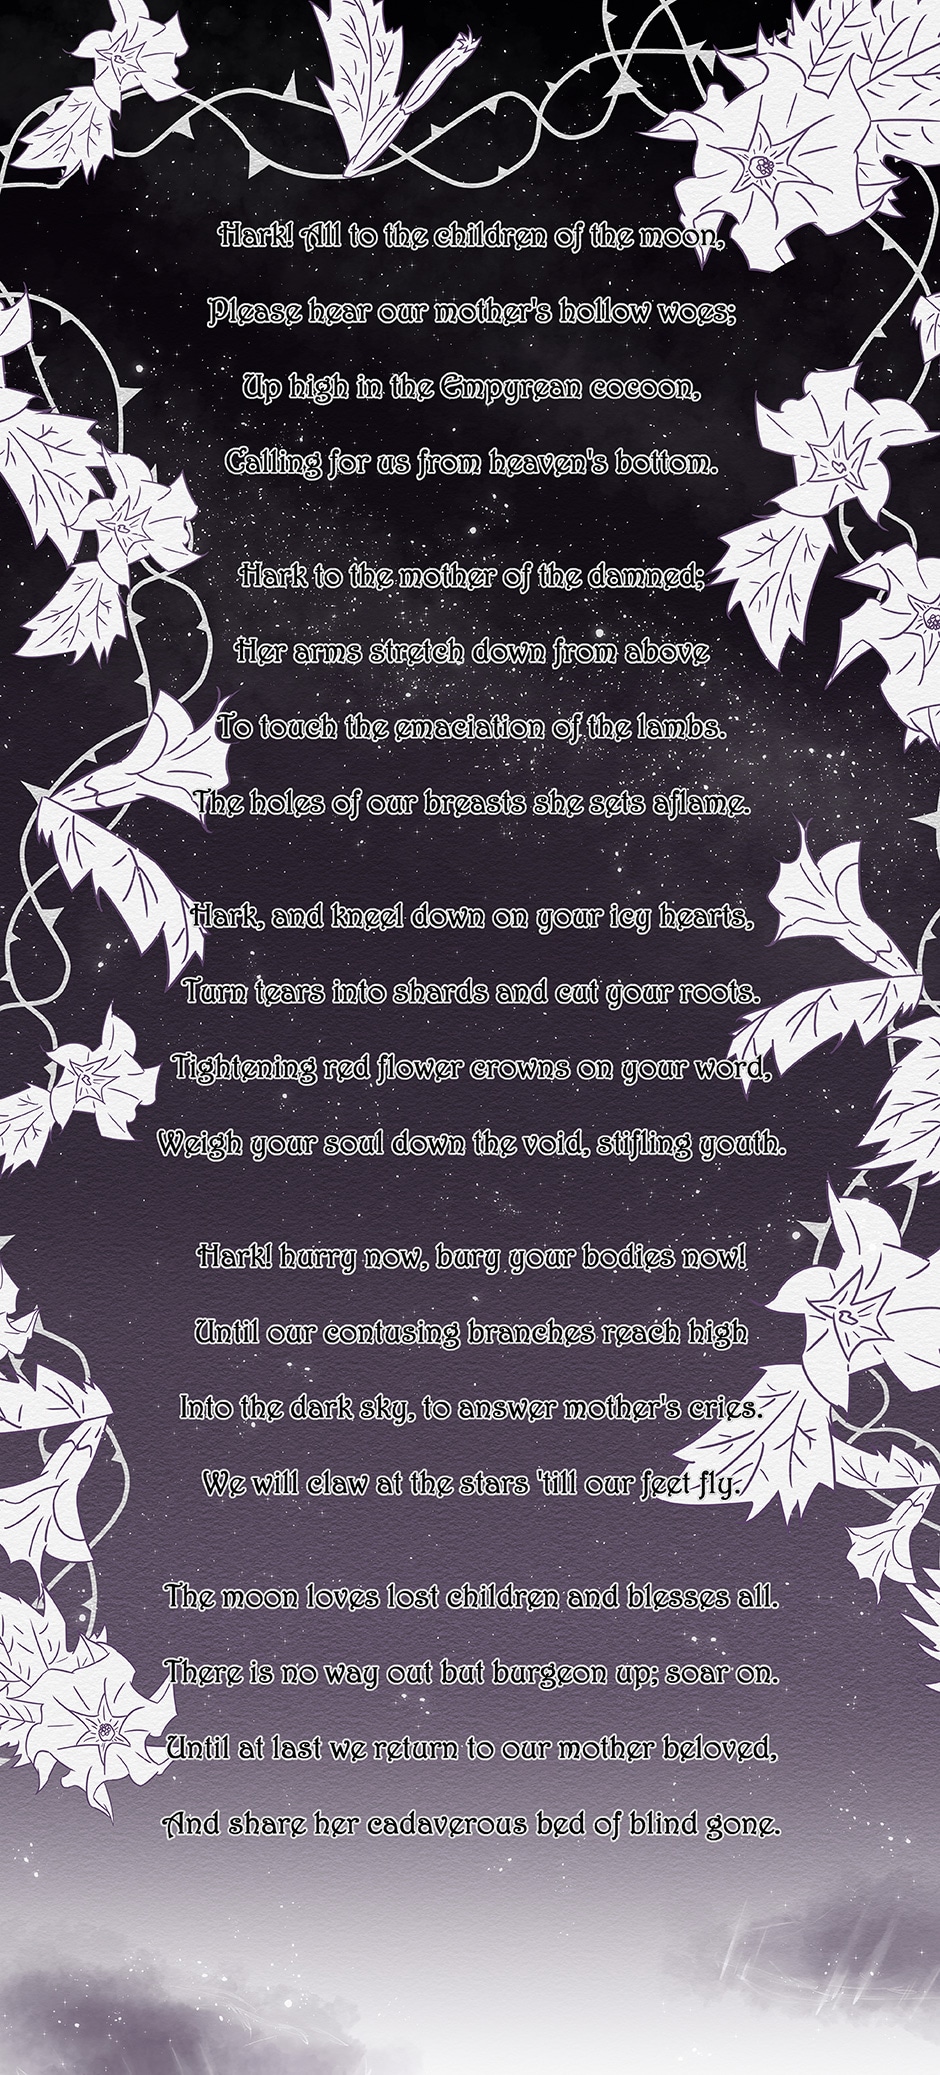 Hark! All to the children of the moon,
Please hear our mother's hollow woes;
Up high in the Empyrean cocoon,
Calling for us from heaven's bottom.
Hark to the mother of the damned;
Her arms stretch down from above
To touch the emaciation of the lambs.
The holes of our breasts she sets aflame.
Hark, and kneel down on your icy hearts,
Turn tears into shards and cut your roots.
Tightening red flower crowns on your word,
Weigh your soul down the void, stifling youth.
Hark! hurry now, bury your bodies now!
Until our contusing branches reach high
Into the dark sky, to answer mother's cries.
We will claw at the stars 'till our feet fly.
The moon loves lost children and blesses all.
There is no way out but burgeon up; soar on.
Until at last we return to our mother beloved,
And share her cadaverous bed of blind gone.